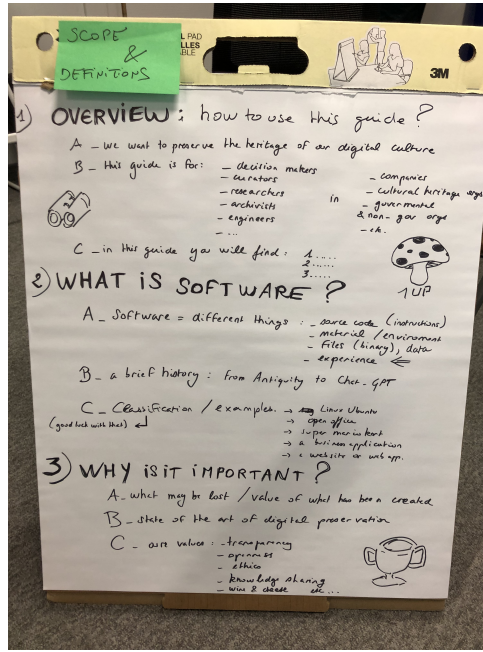 SCOPE
&
DEFINITIONS
PAD
LLES
ABLE
3M
1) OVERVIEW : how to use this guide ?
A _ we want to preserve the heritage of our digital culture
B _ this guide is for :
_ decision makers
_ curators
_ researchers
_ archivists
_ engineers
_ ...
in
_ companies
_ cultural heritage orgs
_ governmental
& non-gov orgs
_ etc.
C _ in this guide you will find :
1.....
2.....
3.....
1UP
2) WHAT iS SOFTWARE ?
A _ Software = different things :
_ source code (instructions)
_ material / enviroment
_ Files (binary), data
_ experience ←
B _ a brief history : from Antiquity to Chat_GPT
C _ Classification / examples.
(good luck with that) ↲
→ Linux Ubuntu
→ open office
→ super mario kart
→ a business application
→ a website or web app.
3) WHY iS iT iMPORTANT ?
A _ what may be lost / value of what has been created
B _ state of the art of digital preservation
C _ core values :
_ transparency
_ openness
_ ethics
_ knowledge sharing
_ wine & cheese etc...